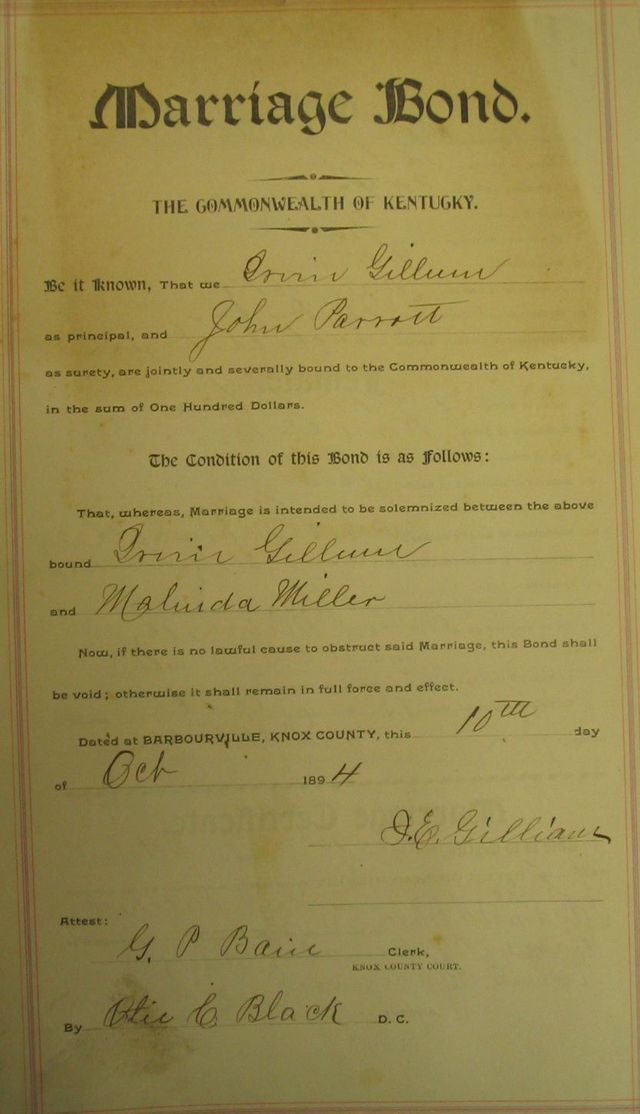 Marriage Bond.
THE COMMONWEALTH OF KENTUCKY.
Be it Known, That we Irvin Gillum
John Parrott
as principal, and
as surety, are jointly and severally bound to the Commonwealth of Kentucky,
in the sum of One Hundred Dollars.
The Condition of this Bond is as Follows:
That, whereas, Marriage is intended to be solemnized between the above
bound Irvin Gillum
and Malinda Miller
Now, if there is no lawful cause to obstruct said Marriage, this Bond shall
be void; otherwise it shall remain in full force and effect.
Dated at BARBOURVILLE, KNOX COUNTY, this 10th day
of Oct 1894
J.E. Gilliam
Attest:
G. P Bain Clerk,
KNOX COUNTY COURT.
By C Black D. C.